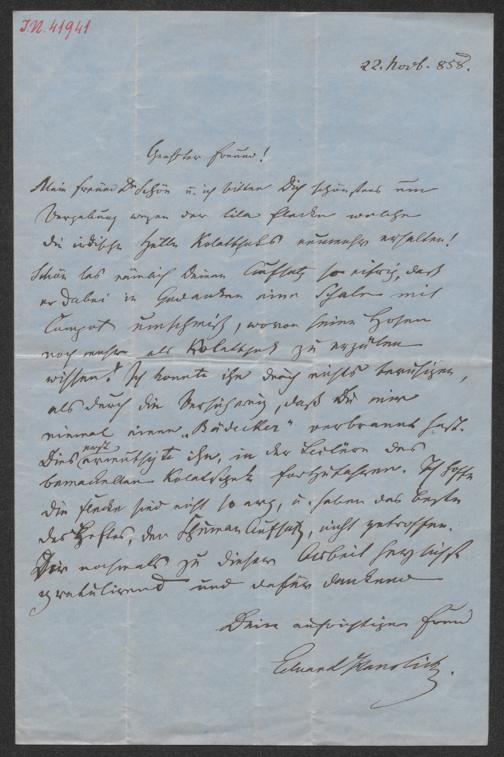 I.N. 41941
22. Novb. 858.
Geehrter Freund!
Mein Freund Dr Schön u. ich bitten Dich schönstens um
Vergebung wegen der lila Flecken welche
die irdische Hülle Kolatscheks nunmehr erhellen!
Schön las nämlich Deinen Aufsatz so eifrig, daß
er dabei in Gedanken eine Schale mit
Compot umschmiß, wovon seine Hosen
noch mehr als Kolatschek zu erzälen
wissen. Ich konnte ihn durch nichts beruhigen,
als durch die Versicherung, daß Du mir
einmal einen „Bädecker" verbrannt hast.
Dies erst ermuthigte ihn, in der Lectüre des
bemackelten Kolatschek fortzufahren. Ich hoffe
die Flecke sind nicht so arg, u. haben das beste
des Heftes, den Schuman Aufsatz, nicht getroffen.
Dir nochmals zu dieser Arbeit herzlichst
gratulirend und dafür dankend
Dein aufrichtiger Freund
Eduard Hanslick.